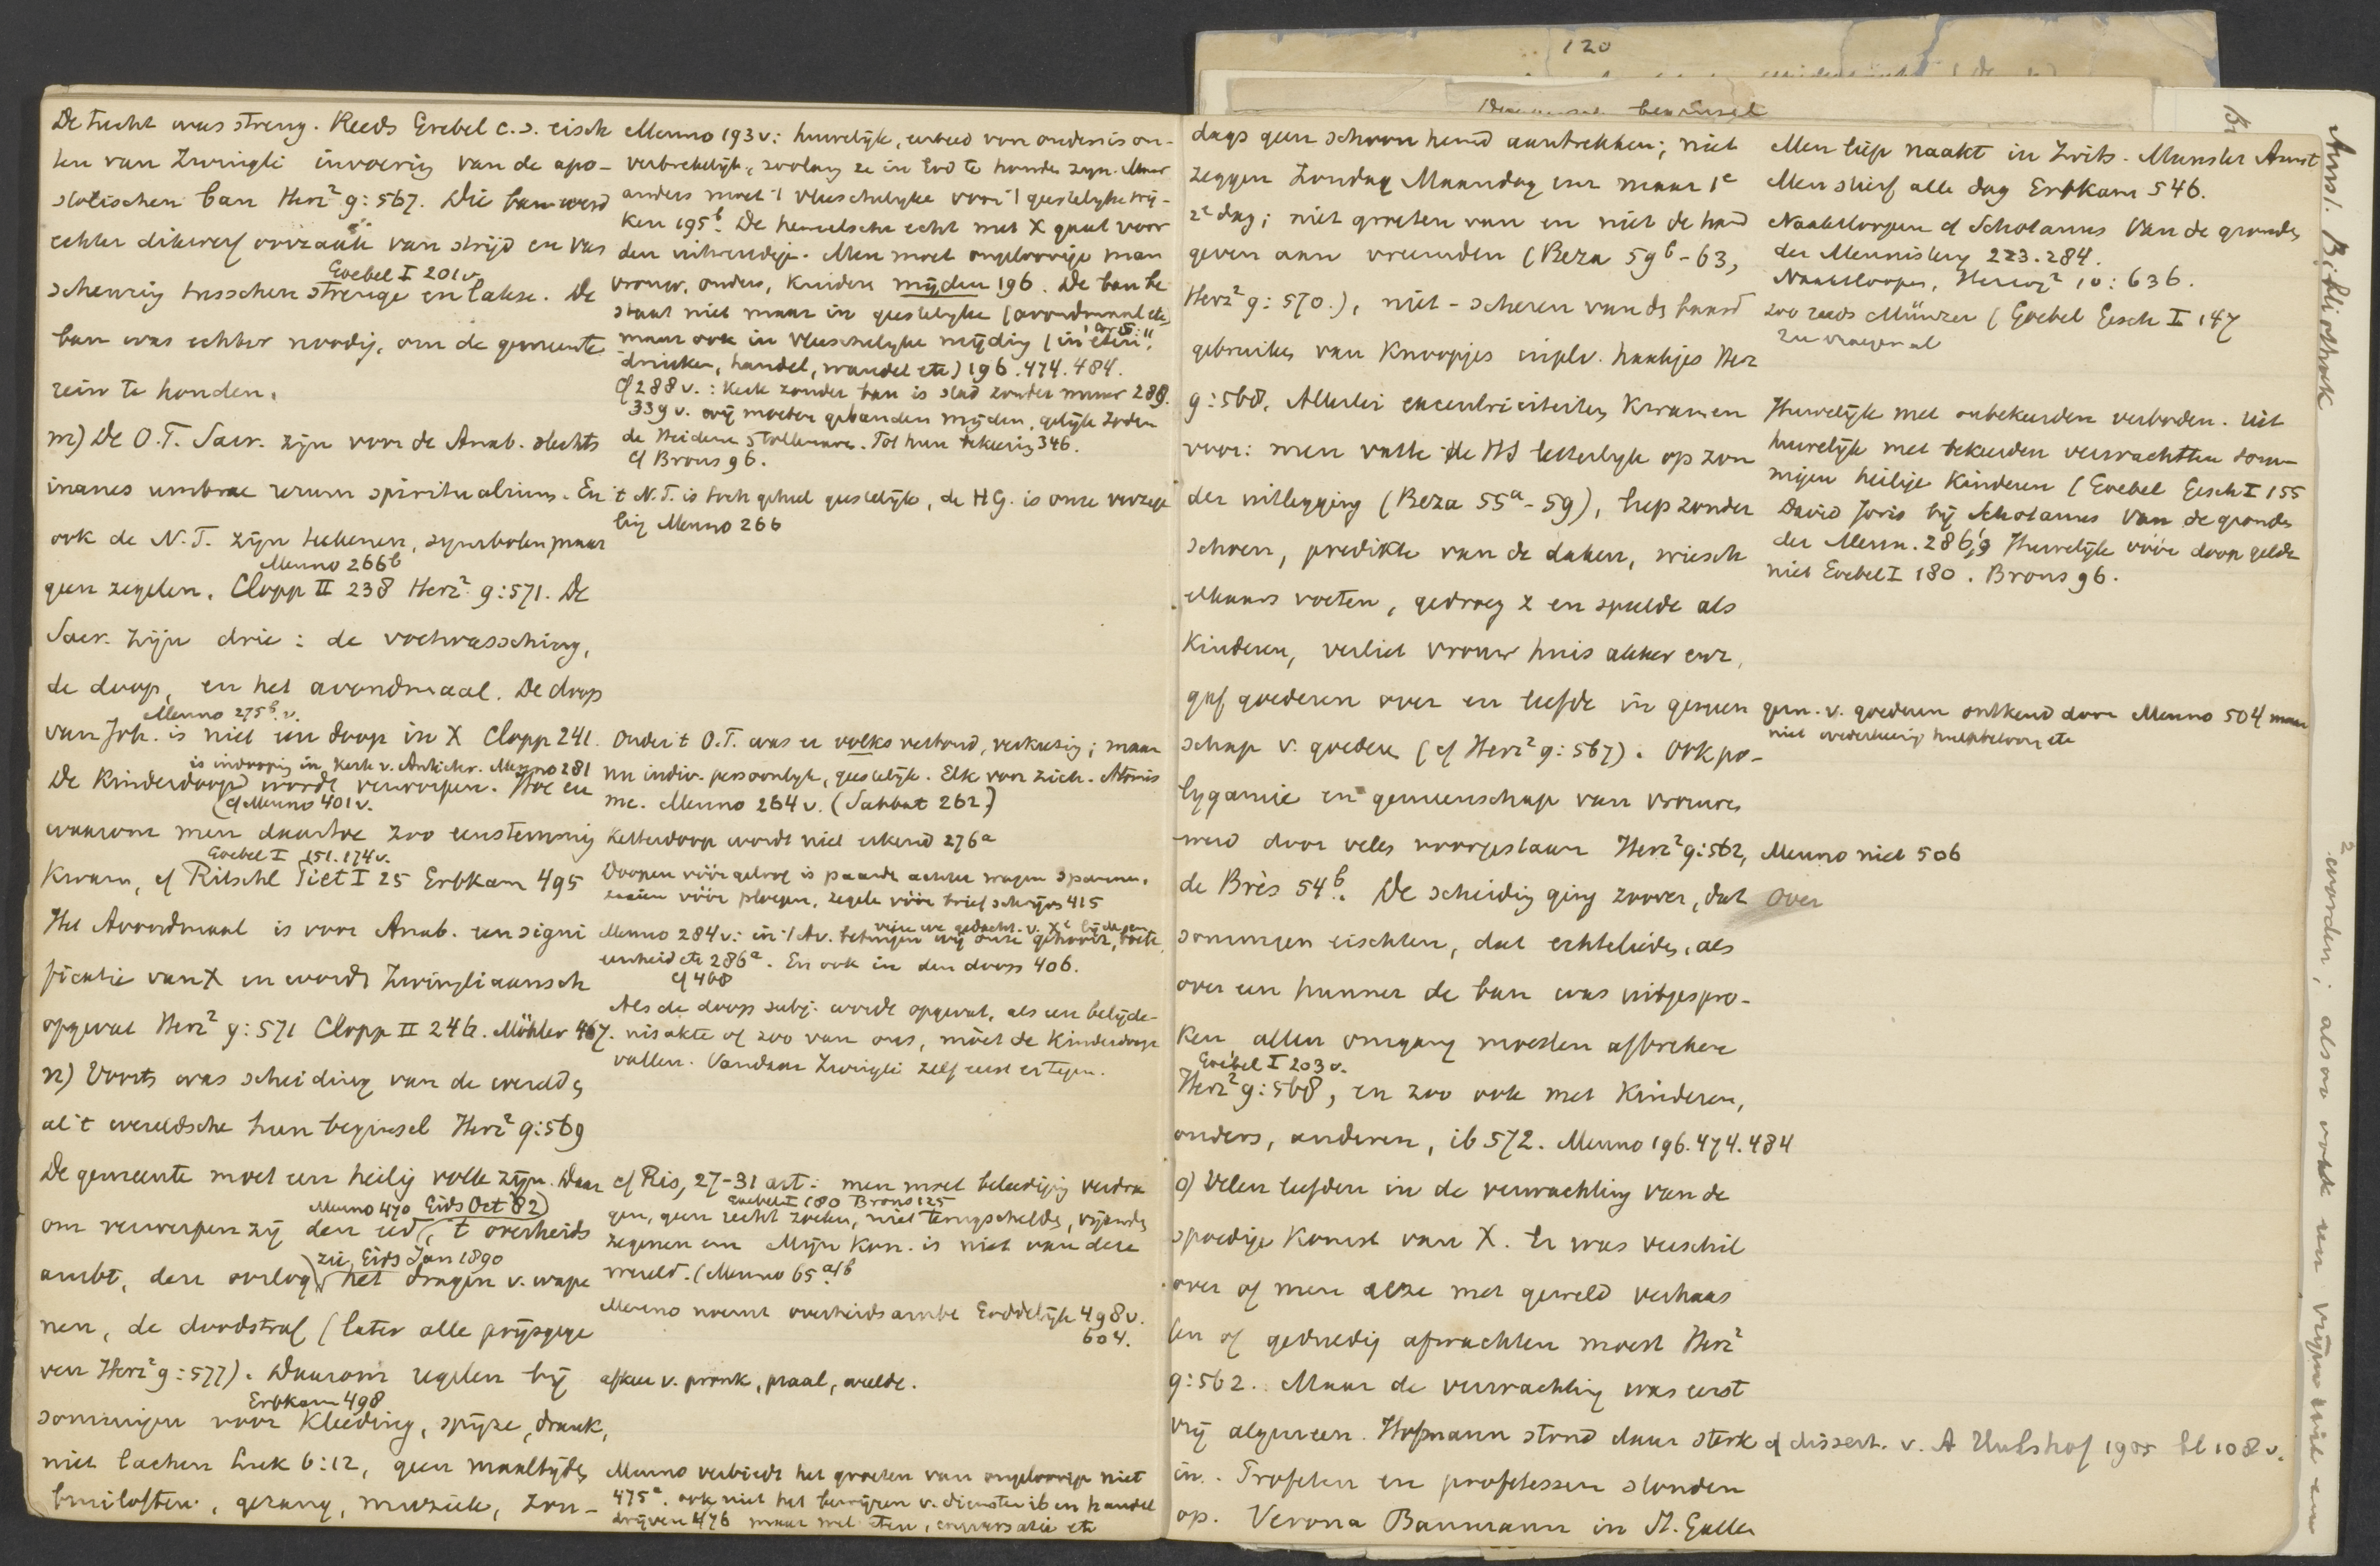 De tucht was streng. Reeds Grebel c.s. eisch
ten van Zwingli invoering van de apo-
stolischen ban Herz² 9:567. Die ban werd
echter dikwerf oorzaak van strijd en van
Goebel I 201v.
scheuring tusschen strenge en lakse. De
ban was echter noodig, om de gemeente
rein te houden.
m) De O.T. Sacr. zijn voor de Anab. slechts
inanes umbrae rerum spiritualium. En
ook de N.T. zijn teekenen, symbolen, maar
Menno 266b
geen zegelen. Clopp II 238 Herz² 9:571. De
Sacr. zijn drie: de voetwassching,
de doop, en het avondmaal. De doop
Menno 275b v.
van Joh. is niet een doop in X Clopp 241.
is indooping in kerk v. Antichr. Menno 281
De Kinderdoop wordt verworpen. Hoe en
(cf Menno 401v.
waarom men daartoe zoo eenstemmig
Goebel I 151.174v.
kwam, cf Ritschl Piet I 25 Erbkam 495
Het Avondmaal is voor Anab. een signi
ficatie van X en wordt Zwingliaansch
opgevat Herz² 9:571 Clopp II 246. Möhler 467.
n) Voorts was scheiding van de wereld &
al 't wereldsche hun beginsel Herz² 9:569
De gemeente moet een heilig volk zijn. Daar
Menno 470 Eids Oct 82)
om verwerpen zij den eed, 't overheids
zie Eids Jan 1890
ambt, den oorlog, het dragen v. wape
nen, de doodstraf (later alle prijsgege
ven Herz² 9:577). Daarom regelen bij
Erbkam 498
sommigen voor kleeding, spijze, drank,
niet lachen Luk 6:12, geen maaltijden
bruiloften, gezang, muziek, zon-
Menno 193v: huwelijk, eerbied van ouders is on-
verbrekelijk, zoolang ze in God te houden zijn. Maar
anders moet 't vleeschelijke voor 't geestelijke wij-
ken 195b. De hemelsche echt met X gaat voor
den uitwendige. Men moet ongeloovige man
vrouw, ouders, kinderen mijden 196. De ban be
staat niet maar in geestelijke (avondmaal etc)
maar ook in vleeschelijke mijding (in eten
drinken, handel, wandel etc) 196.474.484.
cf 288v.: Kerk zonder ban is stad zonder muur 288.
339v. wij moeten gebanden mijden, gelijk Joden
de Heidenen & tollenaren. Tot hun bekeering 346.
cf Brons 96.
't N.T. is toch geheel geestelijk, de HG. is onze verzege
ling Menno 266
Onder 't O.T. was er volksverbond, verkiezing; maar
nu indiv. persoonlijk, geestelijk. Elk voor zich. Atomis
me. Menno 264v. (Sabbat 262)
Ketterdoop wordt niet erkend 276a
Doopen vóór geloof is paarden achter wagen spannen,
zaaien vóór ploegen, zegele vóór brief schrijven 415
Menno 284v: in 't Av. betuigen wij onze gehoorz, boete,
eenheid etc 286a. En ook in den doop 406.
cf 408
Als de doop subj. wordt opgevat, als een belijde-
nisakte of zoo van ons, móet de kinderdoop
vallen. Vandaar Zwingli zelf eerst er tegen.
cf Ris, 27-31 art: men moet beleediging verdra
Goebel I 180 Brons 125
gen, geen recht zoeken, niet terugschelden, vijanden
zegenen enz Mijn Kon. is niet van deze
wereld. (Menno 65a/b
Menno noemt overheidsambt Goddelijk 498v.
604.
afkeer v. pronk, praal, weelde.
Menno verbiedt het groeten van ongeloovige niet
475a. ook niet het bewijzen v. diensten ib en handel
drijven 476 maar wel eten, conversatie etc
120
beginsel
dags geen schoon hemd aantrekken; niet
zeggen Zondag Maandag enz maar 1e
2e dag; niet groeten van en niet de hand
geven aan vreemden (Beza 59b-63,
Herz² 9:570.), niet-scheren van de baard
gebruiken van knoopjes inplv. haakjes Herz
9:568. Allerlei excentriciteiten kwamen
voor: men vatte de HS letterlijk op zon
der uitlegging (Beza 55a-59), liep zonder
schoen, predikte van de daken, wiesch
elkaars voeten, gedroeg z en speelde als
kinderen, verliet vrouw huis akker enz,
gaf goederen over en leefde in gemeen
schap v. goeden (cf Herz² 9:567). Ook po-
lygamie en gemeenschap van vrouwen
werd door velen voorgestaan Herz² 9:562,
de Brès 54b. De scheiding ging zoover, dat
sommigen eischten, dat echtelieden, als
over een hunner de ban was uitgespro-
ken allen omgang moesten afbreken
Goebel I 203v.
Herz² 9:568, en zoo ook met kinderen,
ouders, anderen, ib 572. Menno 196.474.484
o) Velen leefden in de verwachting van de
spoedige komst van X. Er was verschil
over of men deze met geweld verhaas
ten of geduldig afwachten moest Herz²
9:562. Maar de verwachting was eerst
vrij algemeen. Hofmann stond daar sterk
in. Profeten en profetessen stonden
op. Verona Baumann in St. Gallen
Men liep naakt in Zwits. Munster Amst
Men stierf alle dag Erbkam 546.
Naaktloopen cf Scholanus Van de gronden
der Mennisterij 223.284.
Naaktloopen, Herzog² 10:636.
zoo reeds Münzer (Goebel Gesch I 147
Huwelijk met onbekeerden verboden. Uit
huwelijk met bekeerden verwachtten som-
migen heilige kinderen (Goebel Gesch I 155
David Joris bij Scholanus Van de gronden
der Menn. 286,9 Huwelijk vóór doop geldt
niet Goebel I 180. Brons 96.
gem. v. goederen ontkend door Menno 504 maar
Menno niet 506
over
cf dissert. v. A Hulshof 1905 bl 108v.
Amst. Bibliotheek
² worden; alsoo ook